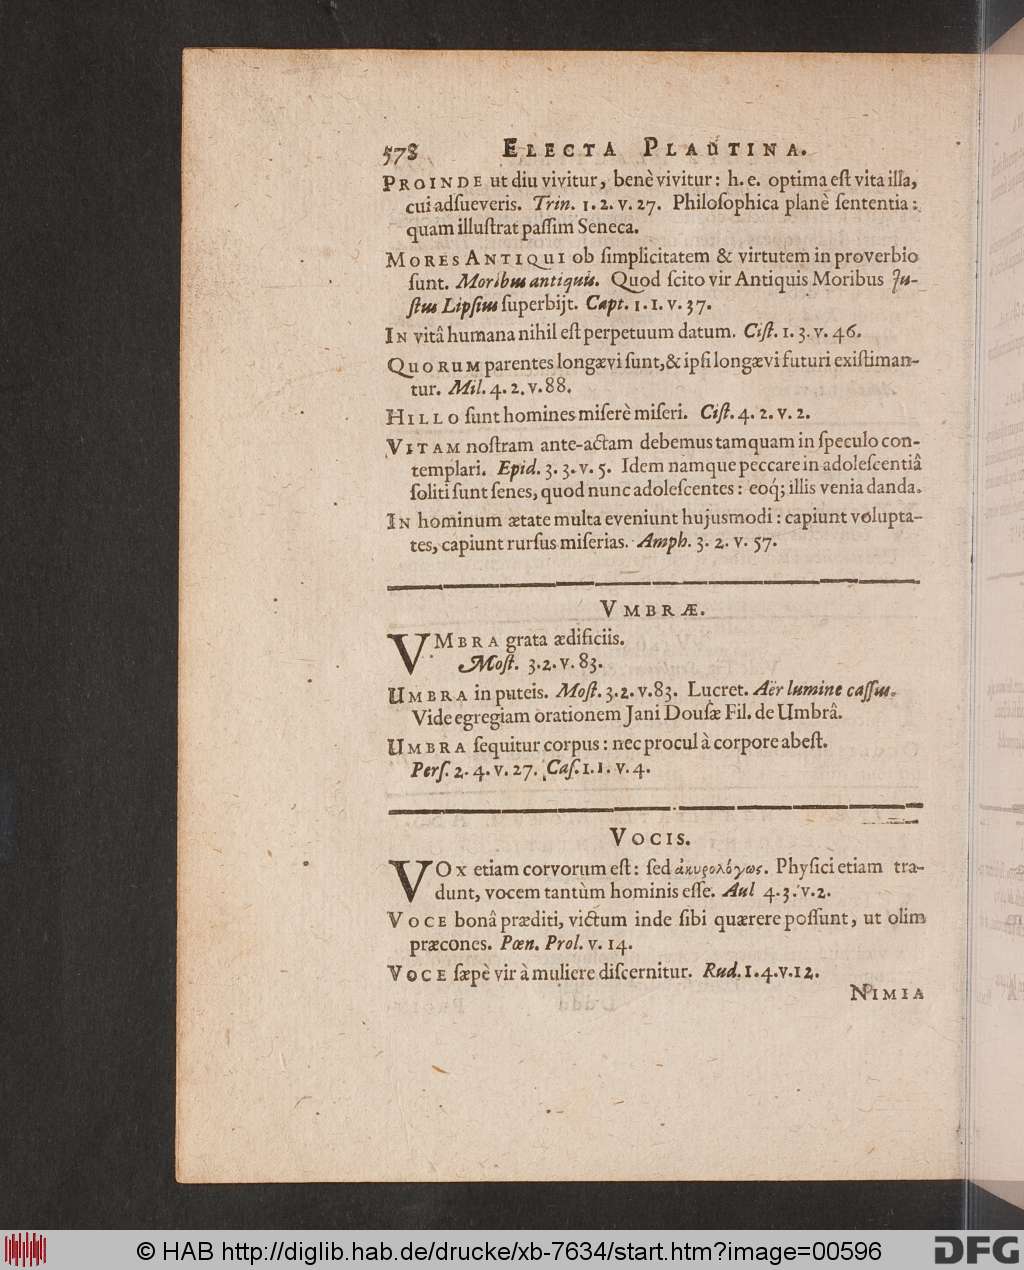 578 ELECTA PLAUTINA.
PROINDE ut diu vivitur, benè vivitur: h. e. optima est vita illa,
cui adsueveris. Trin. 1. 2. v. 27. Philosophica planè sententia:
quam illustrat passim Seneca.
MORES ANTIQUI ob simplicitatem & virtutem in proverbio
sunt. Moribus antiquis. Quod scito vir Antiquis Moribus Ju-
stus Lipsius superbijt. Capt. 1. 1. v. 37.
IN vitâ humana nihil est perpetuum datum. Cist. 1. 3. v. 46.
QUORUM parentes longævi sunt, & ipsi longævi futuri existiman-
tur. Mil. 4. 2. v. 88.
HILLO sunt homines miserè miseri. Cist. 4. 2. v. 2.
VITAM nostram ante-actam debemus tamquam in speculo con-
templari. Epid. 3. 3. v. 5. Idem namque peccare in adolescentiâ
soliti sunt senes, quod nunc adolescentes: eoq́; illis venia danda.
IN hominum ætate multa eveniunt hujusmodi: capiunt volupta-
tes, capiunt rursus miserias. Amph. 3. 2. v. 57.
VMBRÆ.
VMBRA grata ædificiis.
Most. 3. 2. v. 83.
UMBRA in puteis. Most. 3. 2. v. 83. Lucret. Aër lumine cassus.
Vide egregiam orationem Jani Dousæ Fil. de Umbrâ.
UMBRA sequitur corpus: nec procul à corpore abest.
Pers. 2. 4. v. 27. Cas. 1. 1. v. 4.
VOCIS.
VOX etiam corvorum est: sed ἀκυρολόγως. Physici etiam tra-
dunt, vocem tantùm hominis esse. Aul 4. 3. v. 2.
VOCE bonâ præditi, victum inde sibi quærere possunt, ut olim
præcones. Pœn. Prol. v. 14.
VOCE sæpè vir à muliere discernitur. Rud. 1. 4. v. 12.
NIMIA
© HAB http://diglib.hab.de/drucke/xb-7634/start.htm?image=00596
DFG